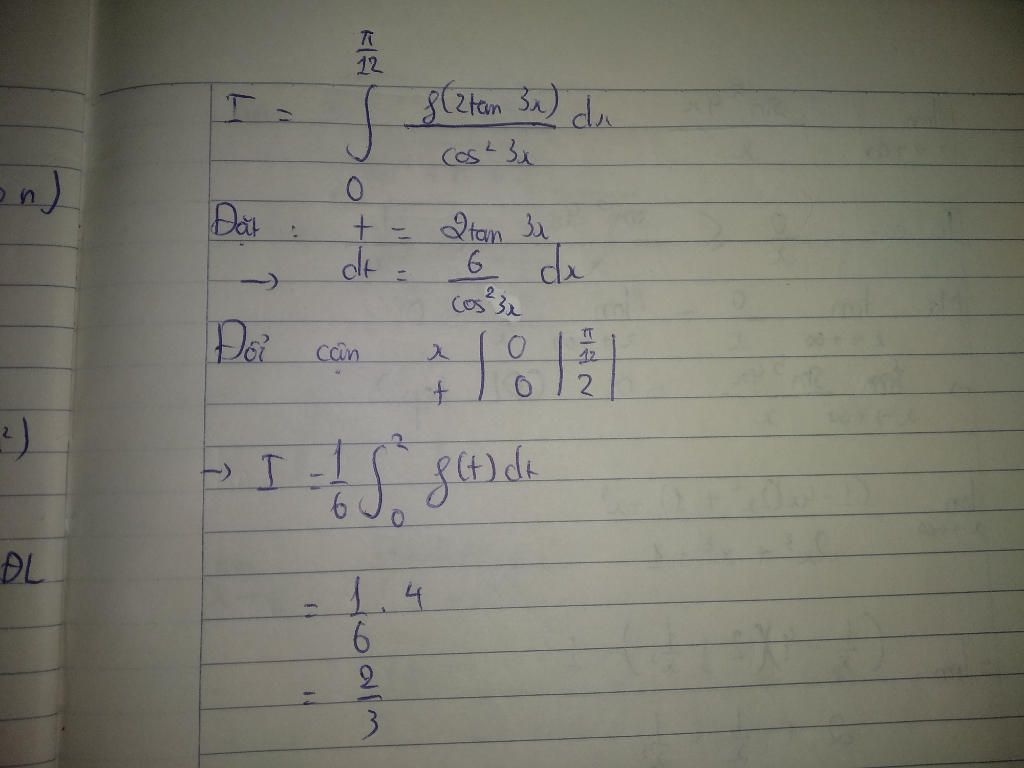 n)
I = ∫₀^(π/12) f(2tan 3x)/cos² 3x dx
Đặt : t = 2tan 3x
→ dt = 6/cos² 3x dx
Đổi cận x | 0 | π/12 |
t | 0 | 2 |
²)
→ I = 1/6 ∫₀² f(t) dt
ĐL
= 1/6 . 4
= 2/3